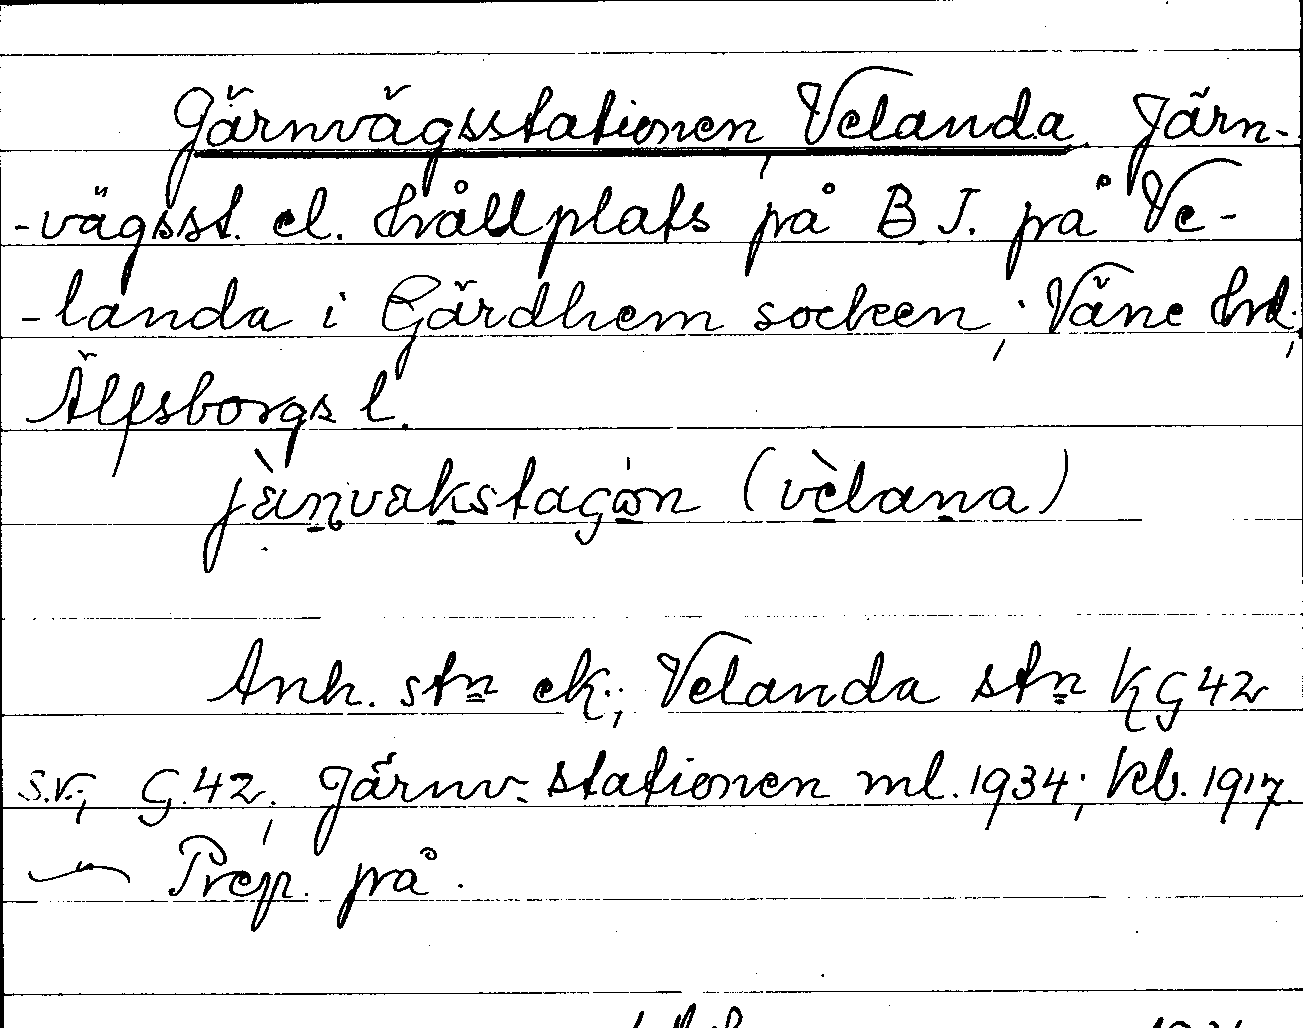 Järnvägsstationen, Velanda. Järn-
-vägsst. el. hållplats på B.J. på Ve-
-landa i Gärdhem socken, Väne hrd,
Älfsborgs l.
jànvakstaçón (vèlana)
Anh. stn ek.; Velanda stn KG42
s.v.; G.42; Järnv. stationen ml. 1934; kb. 1917
Prep. på.